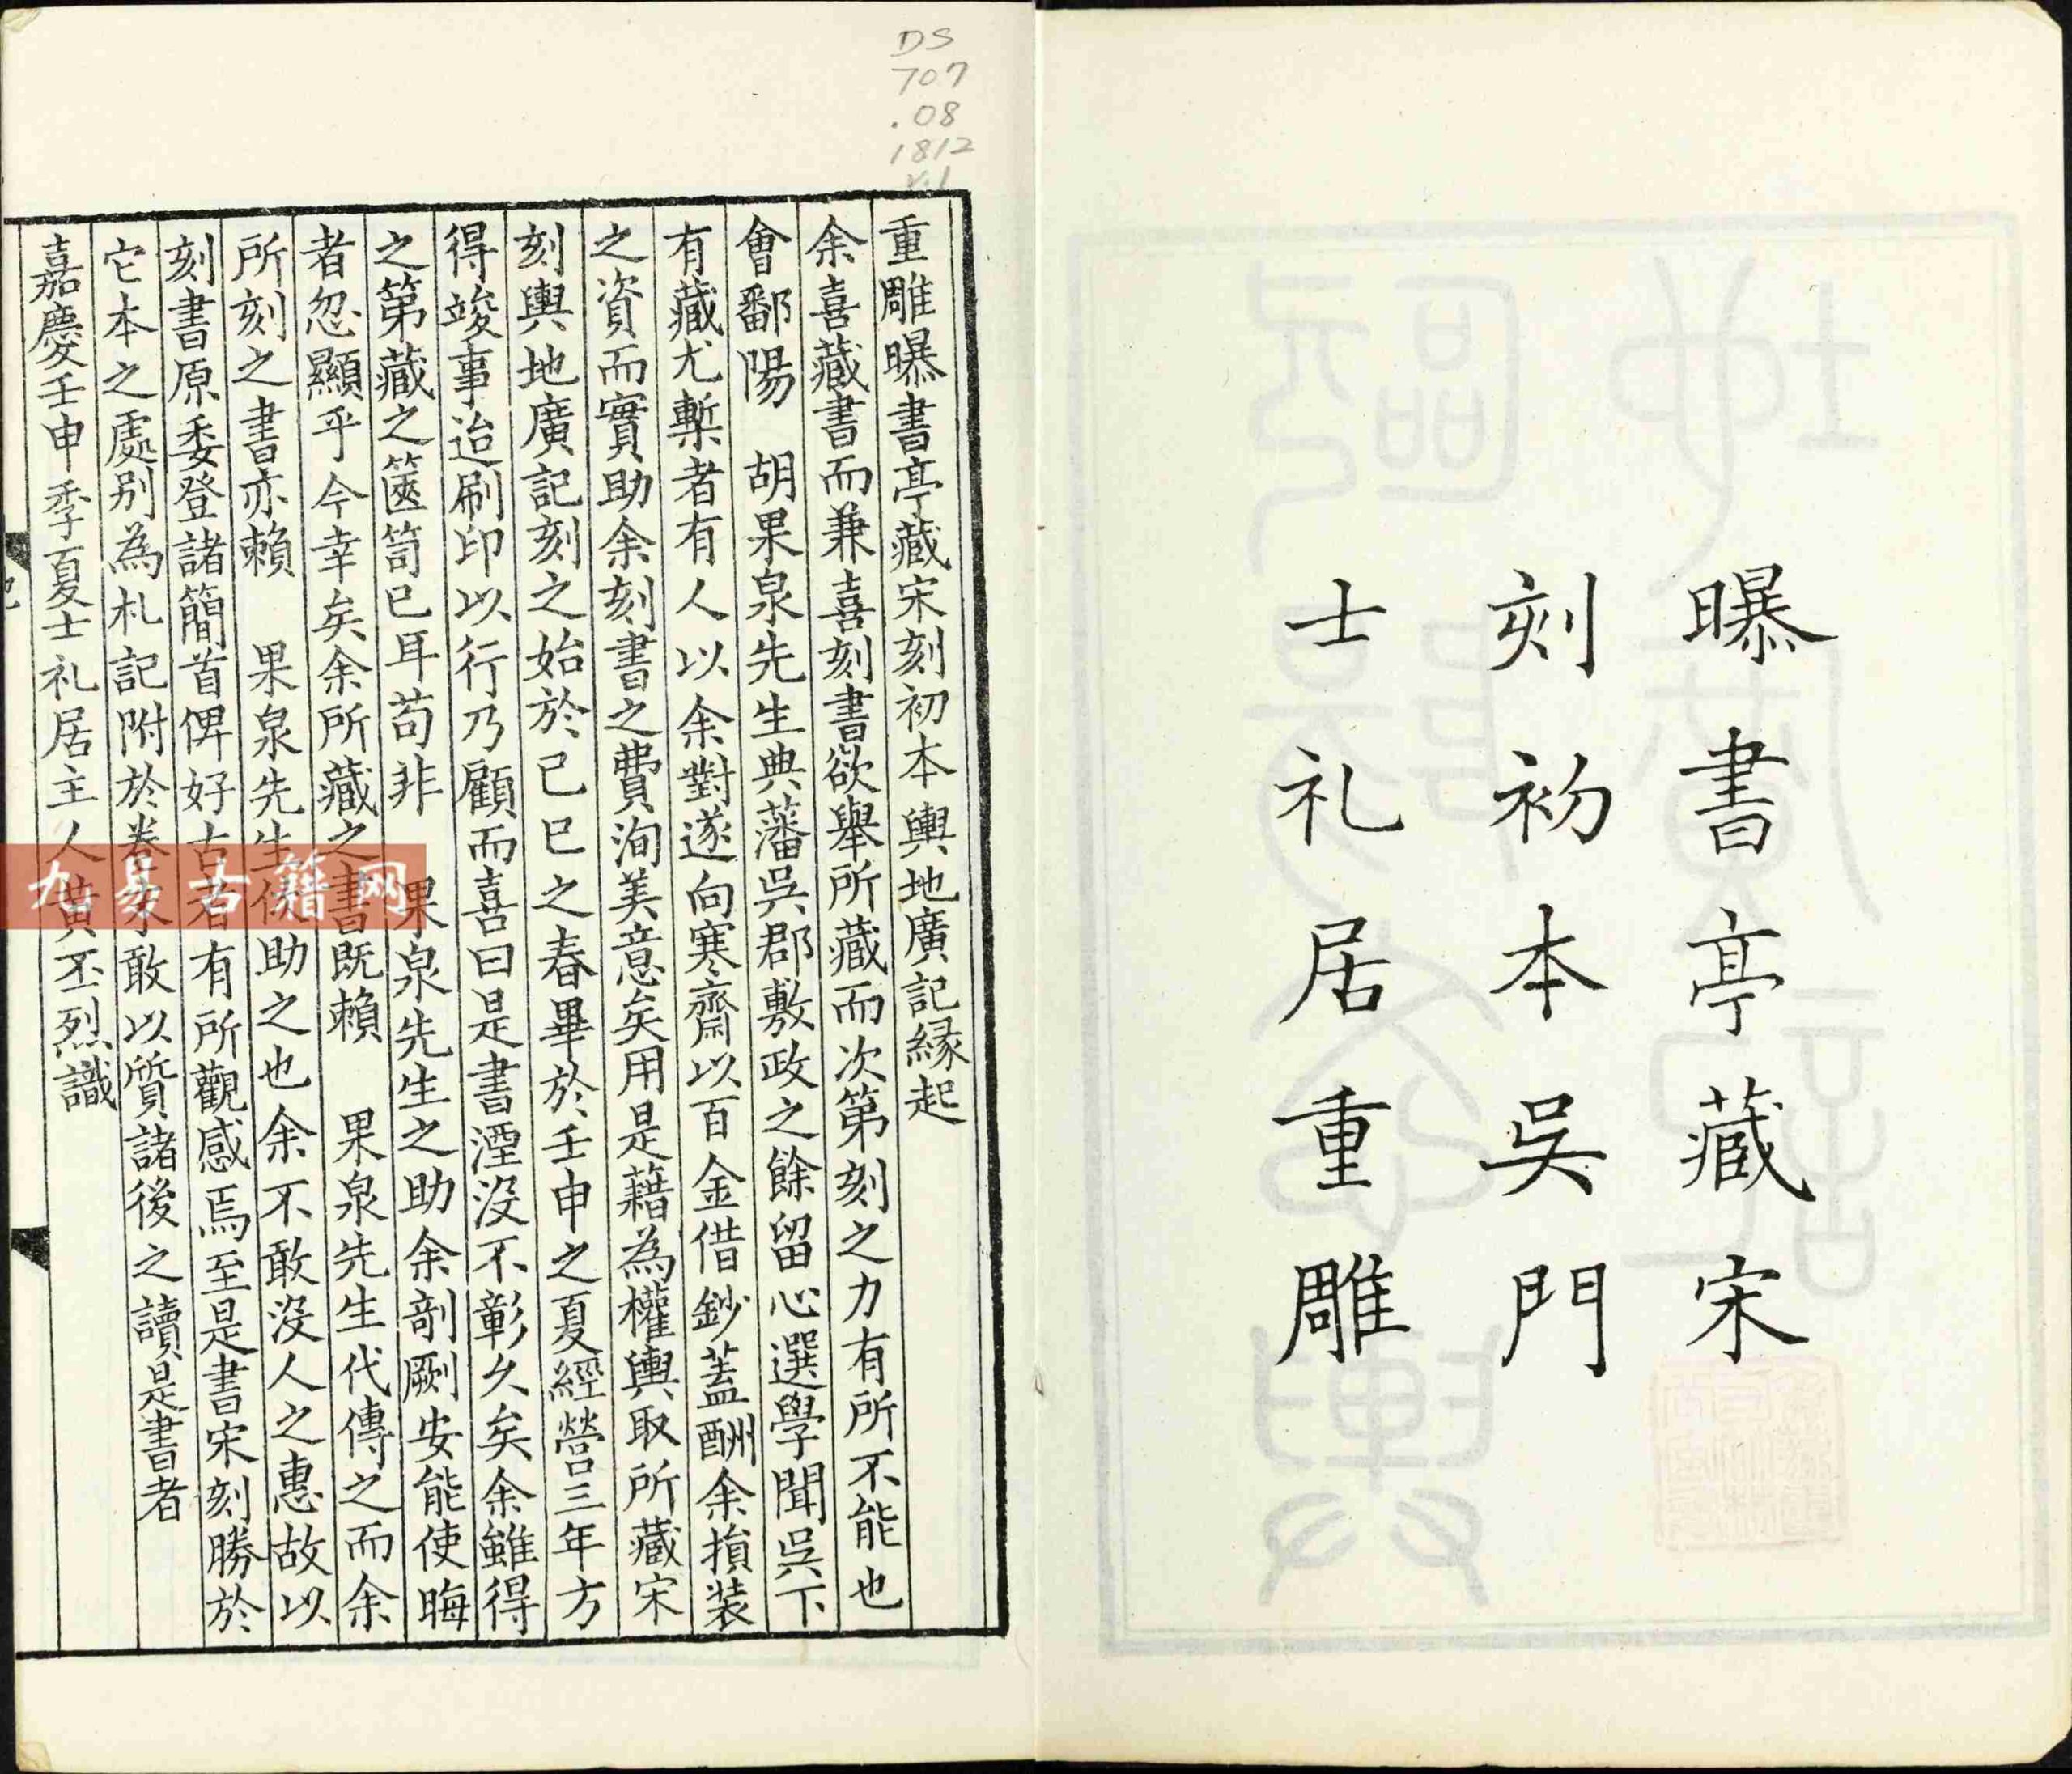 曝書亭藏宋
刻初本吳門
士礼居重雕
DS
707
.08
1812
v.1
重雕曝書亭藏宋刻初本輿地廣記緣起
余喜藏書而兼喜刻書欲舉所藏而次第刻之力有所不能也
會鄱陽 胡果泉先生典藩吳郡敷政之餘留心選學聞吳下
有藏尤槧者有人以余對遂向寒齋以百金借鈔蓋酬余損裝
之資而實助余刻書之費洵美意矣用是藉為權輿取所藏宋
刻輿地廣記刻之始於己巳之春畢於壬申之夏經營三年方
得竣事迨刷印以行乃顧而喜曰是書湮沒不彰久矣余雖得
之第藏之篋笥已耳苟非 果泉先生之助余剞劂安能使晦
者忽顯乎今幸矣余所藏之書既賴 果泉先生代傳之而余
所刻之書亦賴 果泉先生佽助之也余不敢沒人之惠故以
刻書原委登諸簡首俾好古者有所觀感焉至是書宋刻勝於
它本之處别為札記附於卷末敢以質諸後之讀是書者
嘉慶壬申季夏士礼居主人黃丕烈識
九易古籍网